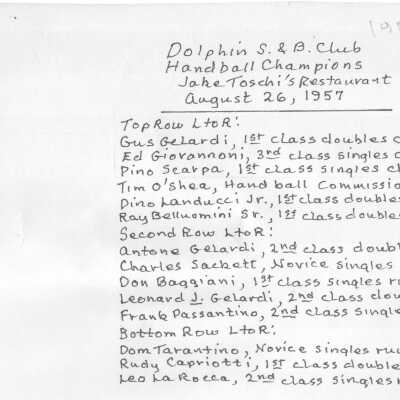 Dolphin S. & B. Club
Handball Champions
Jake Toschi's Restaurant
August 26, 1957
Top Row L to R:
Gus Gelardi, 1st class doubles c
Ed Giovannoni, 3rd class singles c
Pino Scarpa, 1st class singles ch
Tim O'Shea, Handball Commissio
Dino Landucci Jr., 1st class doubles
Ray Belluomini Sr., 1st class doubles
Second Row L to R:
Antone Gelardi, 2nd class doubl
Charles Sackett, Novice singles
Don Baggiani, 1st class singles ru
Leonard J. Gelardi, 2nd class dou
Frank Passantino, 2nd class single
Bottom Row L to R:
Dom Tarantino, Novice singles run
Rudy Capriotti, 1st class double
Leo La Rocca, 2nd class singles r